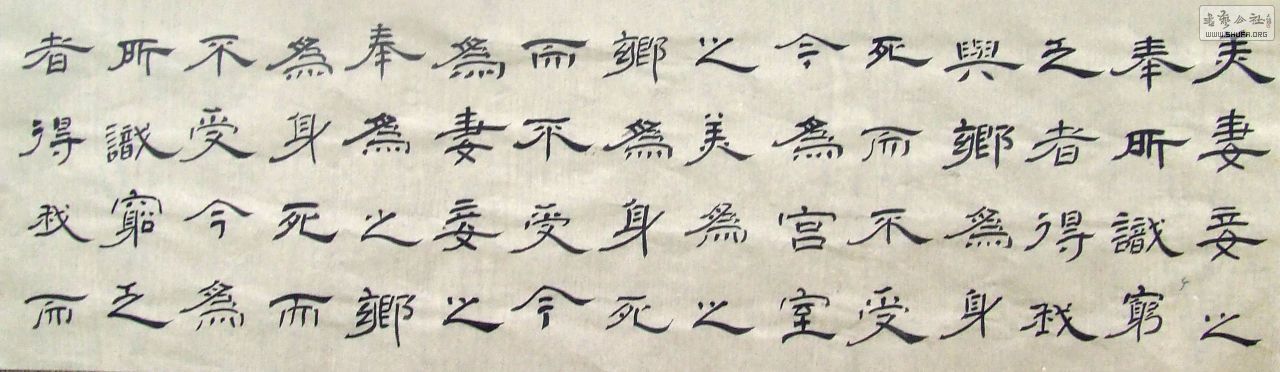 美妻妾之
奉所識窮
乏者得我
與鄉爲身
死而不受
今爲宮室
之美爲之
鄉爲身死
而不受今
爲妻妾之
奉爲之鄉
爲身死而
不受今爲
所識窮乏
者得我而
书艺公社
WWW.SHUFA.ORG